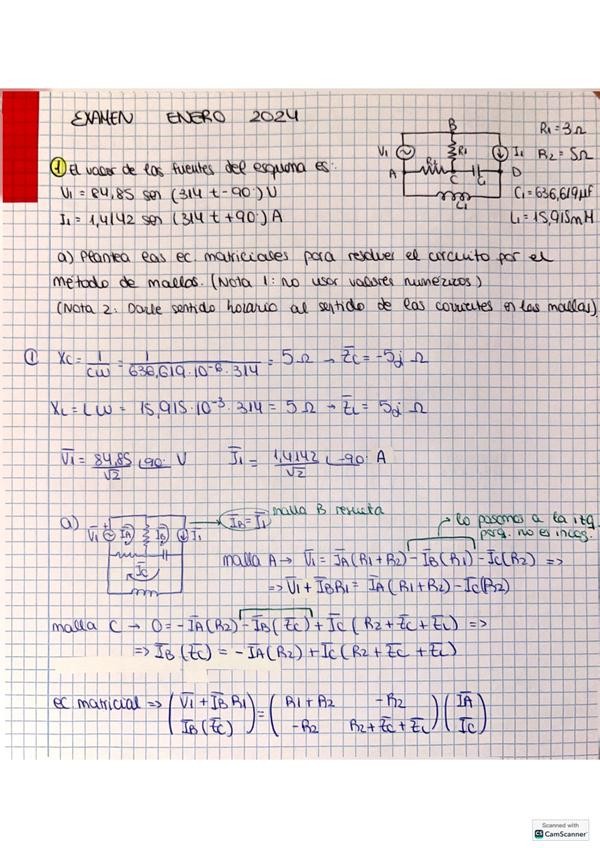 EXAMEN ENERO 2024
B
R1 = 3Ω
V1
R1
I1
R2 = 5Ω
R2
A
C
C1
D
C1 = 636,619 μf
L1
L1 = 15,915mH
1 El valor de las fuentes del esquema es:
V1 = 84,85 sen (314 t - 90°) V
I1 = 1,4142 sen (314 t + 90°) A
a) Plantea las ec. matriciales para resolver el circuito por el
método de mallas. (Nota 1: no usar valores numéricos)
(Nota 2: Darle sentido horario al sentido de las corrientes en las mallas)
① Xc = 1/CW = 1/636,619·10^-6·314 = 5 Ω → Z̄c = -5j Ω
XL = LW = 15,915·10^-3·314 = 5 Ω → Z̄L = 5j Ω
V̄1 = 84,85/√2 ∠90° V Ī1 = 1,4142/√2 ∠-90° A
a) V̄1 ĪA ĪB Ī1 ĪC
ĪB = Ī1 malla B resuelta
lo pasamos a la izq.
porq. no es incog.
malla A → V̄1 = ĪA (R1 + R2) - ĪB (R1) - ĪC (R2) =>
=> V̄1 + ĪB R1 = ĪA (R1 + R2) - ĪC (R2)
malla C → 0 = -ĪA (R2) - ĪB (Z̄c) + ĪC (R2 + Z̄c + Z̄L) =>
=> ĪB (Z̄c) = -ĪA (R2) + ĪC (R2 + Z̄c + Z̄L)
ec matricial => (V̄1 + ĪB R1) = (R1 + R2 -R2) (ĪA)
(ĪB (Z̄c)) (-R2 R2 + Z̄c + Z̄L) (ĪC)
Scanned with
CS CamScanner